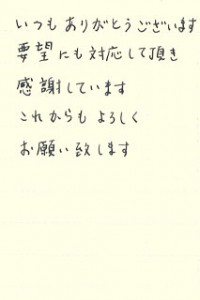 いつもありがとうございます
要望にも対応して頂き
感謝しています
これからもよろしく
お願い致します